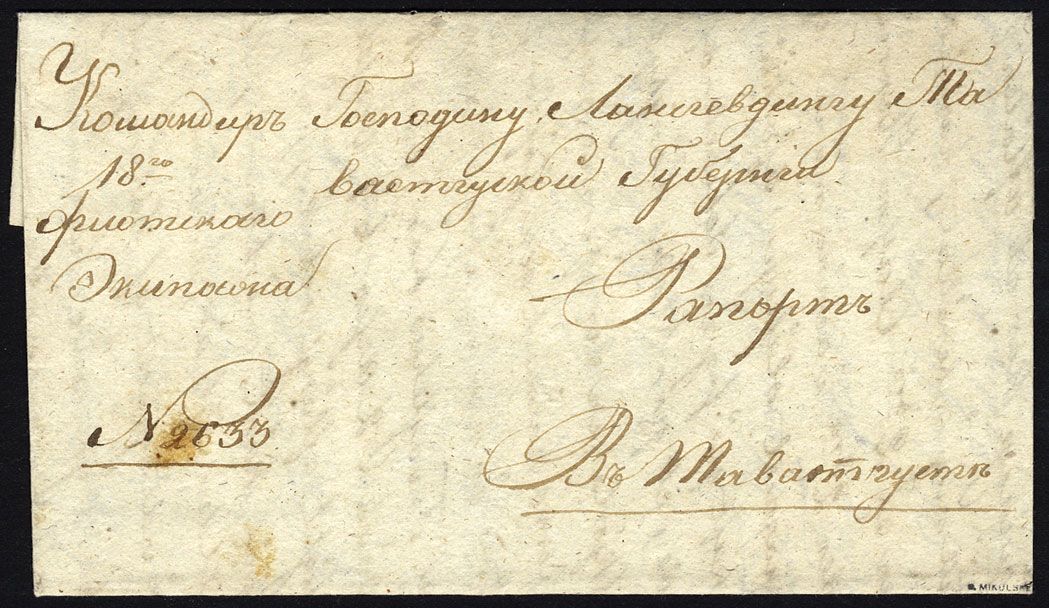 Командиръ
18го
флотскаго
Экипажа
№ 2633
Господину Лангевдингу Та
вастгуской Губерніи
Рапортъ
Въ Тавастгустѣ
MIKULSKI